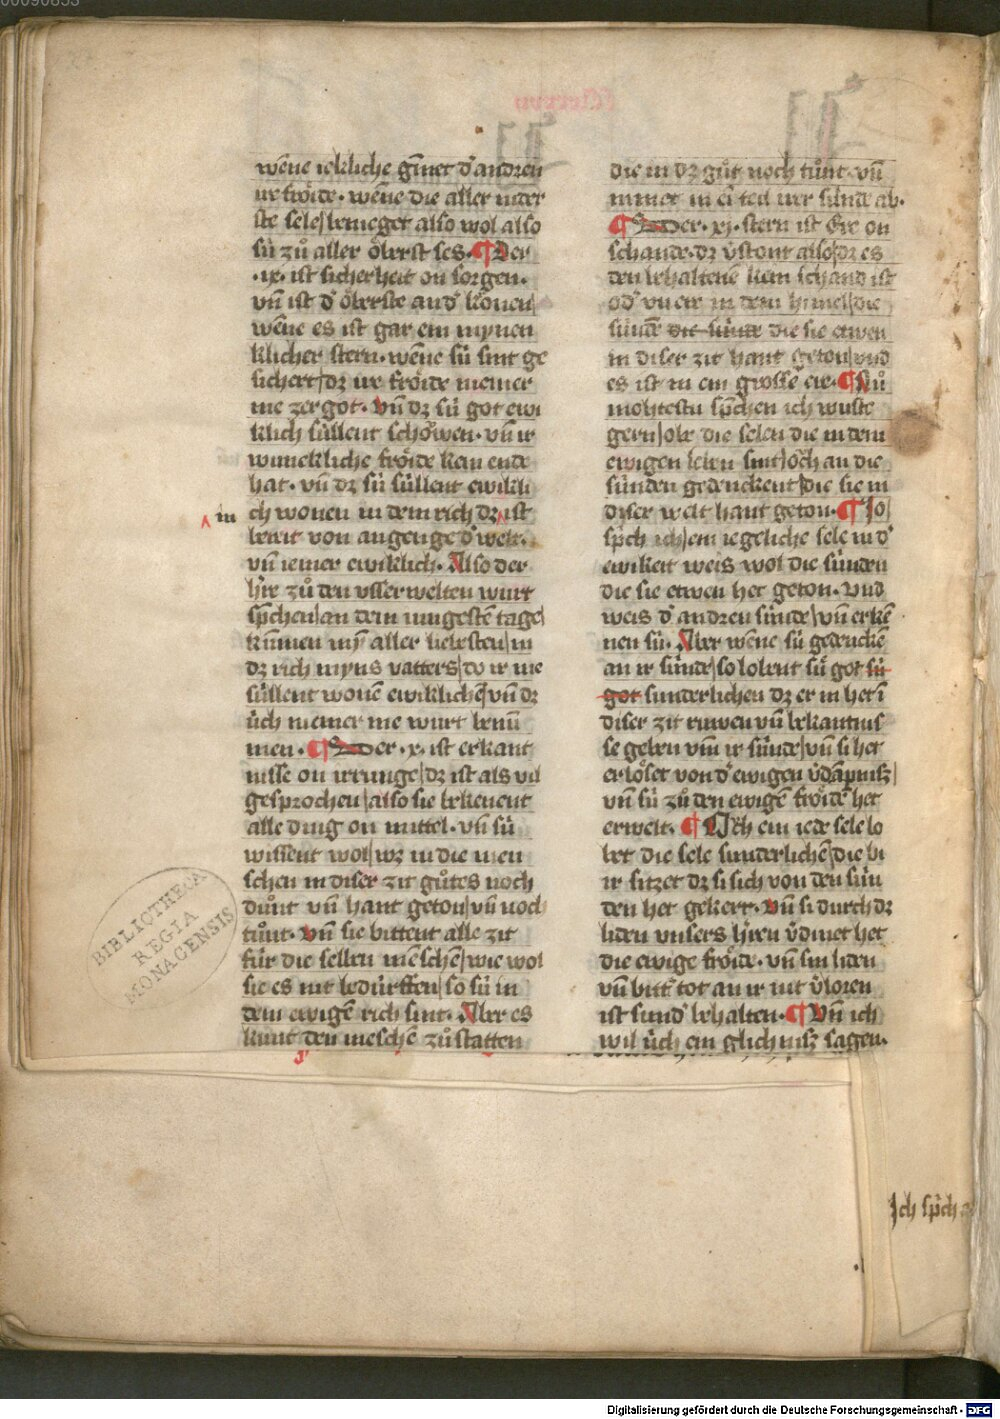 wēne iekliche gīnet d' andren
ire froͤide · wēne die aller nider
ste sele benieget also wol also
sú zuͦ aller oͤberst ses · ¶ Der
· ix · ist sicherheit on sorgen ·
vn̄ ist d' oͤberste and' kronen
wēne es ist gar ein mynen
klicher stern · wēne sú sint ge
sichert dz ire froͤide niemer
me zergot · Vn̄ dz sú got ewi
klich súllent schoͤwen · vn̄ ir
wunekliche froͤide kan ende
hat · vn̄ dz sú súllent ewikli
ch wonen in dem rich dz ist
in
bereit von angenge d' welt ·
vn̄ iemer ewiklich · Also der
h're zuͦ den vsserwelten wurt
sp̄chen an dem iungestē tage
kūmen mȳ aller liebesten in
dz rich myns vatters do ir ine
súllent wonē ewiklichē vn̄ dz
úch niemer me wurt benū
men · ¶ Der · x · ist erkant
nisse on irrunge dz ist als vil
gesprochen also sie bekenent
alle ding on mittel · vn̄ sú
wissent wol wz in die men
schen in diser zit guͦtes noch
duͦnt vn̄ hant geton vn̄ noch
tuͦnt · Vn̄ sie bittent alle zit
fúr die selben mēschē wie wol
sie es nit bedúrffen so sú in
dem ewigē rich sint · Aber es
kunt den meschē zuͦ statten
die in dz guͦt noch tuͦnt · vn̄
nimet in ei teil irer súnde ab ·
¶ Der · xj · stern ist Ere on
schande · dz v'stont also dz es
den behaltenē kein schand ist
od' vnere in dem himel die
súnde die súnde die sie etwen
in diser zit hant geton vnd
es ist in ein grossē ere · ¶ Nuͦ
moͤhtestu sp̄chen ich wuste
gern obe die selen die in dem
ewigen leben sint oͮch an die
súnden gedenckent die sie in
diser welt hant geton · ¶ Jo
sp̄ch ich ein iegeliche sele in d'
ewikeit weis wol die súnden
die sie etwen het geton · vnd
weis d' andren súnde vn̄ erkē
nen sú · Aber wēne sú gedenckē
an ir súnde so lobent sú got sú
got sunderlichen dz er in het ī
diser zit ruwen vn̄ bekantnis
se geben vm̄ ir súnde vn̄ si het
erloͤset von d' ewigen v'dāpnisz
vn̄ sú zuͦ den ewigē froͤidē het
erwelt · ¶ Oͮch ein iede sele lo
bet die sele sunderlichē die bi
ir sitzet dz si sich von den sún
den het gekert · Vn̄ si durch dz
liden vnsers h'ren v'dinet het
die ewige froͤide · vn̄ sin liden
vn̄ bitt' tot an ir nit v'loren
ist sund' behalten · ¶ Vn̄ ich
wil úch ein glichnisz sagen ·
Ich sp̄ch
BIBLIOTHECA
REGIA
MONACENSIS
Digitalisierung gefördert durch die Deutsche Forschungsgemeinschaft - DFG